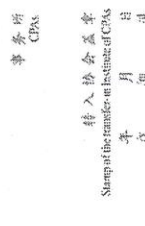 事 务 所
CPAs
转入协会盖章
Stamp of the transfer-in Institute of CPAs
年 月 日